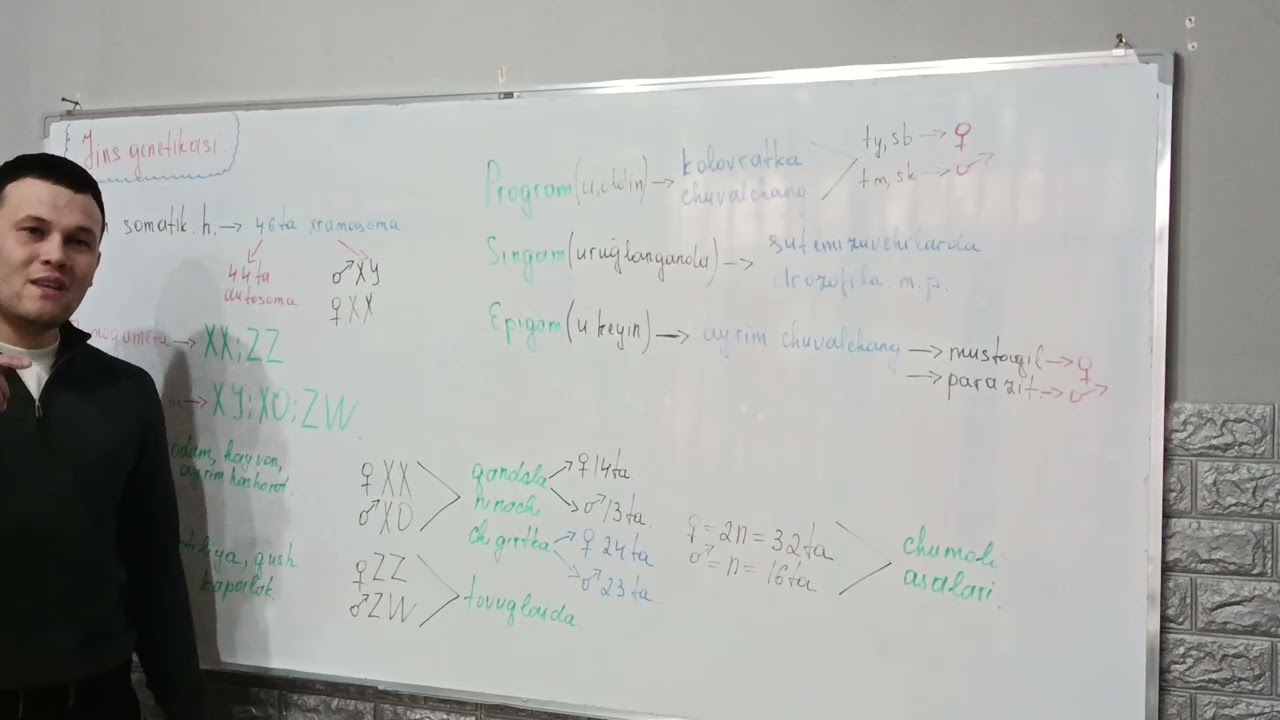 Jins genetikasi.
somatik. h. → 46ta xromosoma
44ta
autosoma
♂XY
♀XX
→ XX; ZZ
→ XY; XO; ZW
odam, hayvon,
ayrim hasharot.
qush
kapalak.
♀XX
♂XO
qandala
ninachi
chigirtka
♀14ta
♂13ta.
♀24ta
♂23ta.
♀ZZ
♂ZW
tovuqlarda
Program (u.oldin) → kolovratka
chuvalchang
ty, sb → ♀
tm, sk → ♂
Singam (urug'langanda) → sutemizuvchilarda
drozofila. m.p.
Epigam (u.keyin) → ayrim chuvalchang → mustaqil → ♀
→ parazit. → ♂
♀ = 2n = 32ta
♂ = n = 16ta
chumoli
asalari.